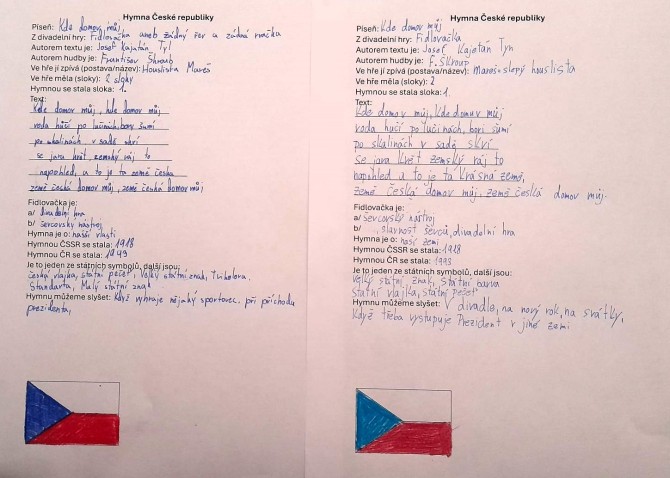 Hymna České republiky
Píseň: Kde domov můj
Z divadelní hry: Fidlovačka aneb žádný hněv a žádná rvačka
Autorem textu je: Josef Kajetán Tyl
Autorem hudby je: František Škroup
Ve hře jí zpívá (postava/název): Houslista Mareš
Ve hře měla (sloky): 2 sloky
Hymnou se stala sloka: 1.
Text:
Kde domov můj, kde domov můj
voda hučí po lučinách, bory šumí
po skalinách v sadě skví
se jara květ, zemský ráj to
napohled, a to je ta země česká
země česká domov můj, země česká domov můj
Fidlovačka je:
a/ divadelní hra
b/ ševcovský nástroj
Hymna je o: naší vlasti
Hymnou ČSSR se stala: 1918
Hymnou ČR se stala: 1949
Je to jeden ze státních symbolů, další jsou:
česká vlajka, státní pečeť, Velký státní znak, Trikolora,
Standarta, Malý státní znak
Hymnu můžeme slyšet: Když vyhraje nějaký sportovec, při příchodu
prezidenta,
Hymna České republiky
Píseň: Kde domov můj
Z divadelní hry: Fidlovačka
Autorem textu je: Josef Kajetán Tyn
Autorem hudby je: F. Škroup
Ve hře jí zpívá (postava/název): Mareš-slepý houslista
Ve hře měla (sloky): 2
Hymnou se stala sloka: 1.
Text:
Kde domov můj, Kde domuv můj
voda hučí po lučinách, bori šumí
po skalinách v sadě skví
se jara květ zemský ráj to
napohled a to je ta krásná země,
země česká domov můj, země česká domov můj.
Fidlovačka je:
a/ ševcovský nástroj
b/ slavnost ševců, divadelní hra
Hymna je o: naší zemi
Hymnou ČSSR se stala: 1918
Hymnou ČR se stala: 1993
Je to jeden ze státních symbolů, další jsou:
velký státní znak, státní barva
státní vlajka, státní pečeť
Hymnu můžeme slyšet: V divadle, na nový rok, na svátky,
Když třeba vystupuje Prezident v jiné zemi